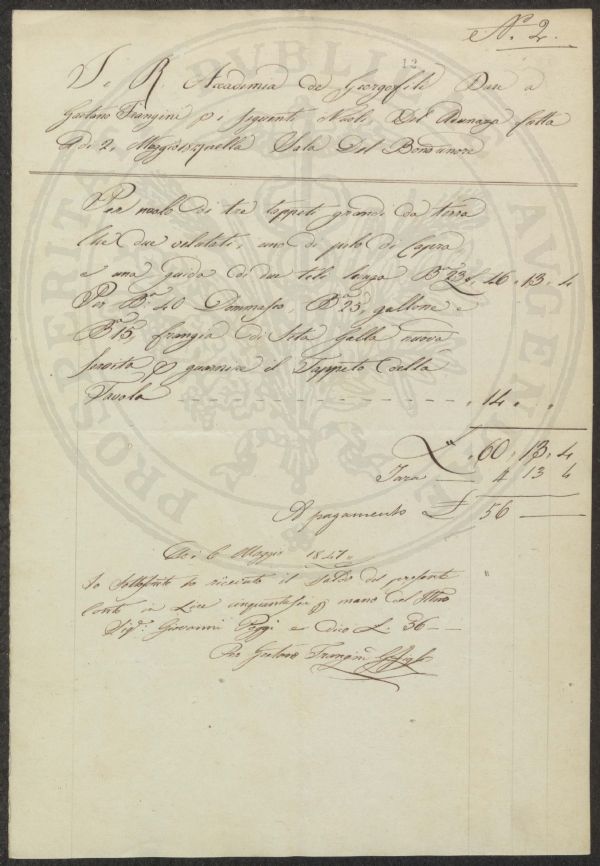 N.º 2.
12
I. R. Accademia de Georgofili Dare a
Gaetano Frangini p i seguenti Noli Del Adunanza fatta
A di 2, Maggio nella Sala Del Buonumore
Per nolo di tre tappeti grandi da terra
che due vellutati, uno di pelo di Capra
e una guida di due teli lunga B.a 23 £, 46, 13, 4
Per B.a 40 Dommasco, B.a 25, gallone e
B.a 15, frangia di Seta Gialla nuova
servita p guarnire il Tappeto della
Tavola - - - - - - - - - - - - , 14 , ,
£, 60, 13, 4
Tara — 4 13 4
A pagamento £ 56 —
Adi 6 Maggio 1847
Io Sottoscritto ho ricevuto il Saldo del presente
Conto in Lire cinquantasei p mano del
Sig.r Giovanni Poggi e dico L. 56 —
Gaetano Frangini
PROSPERITATI PUBLICAE AUGENDAE